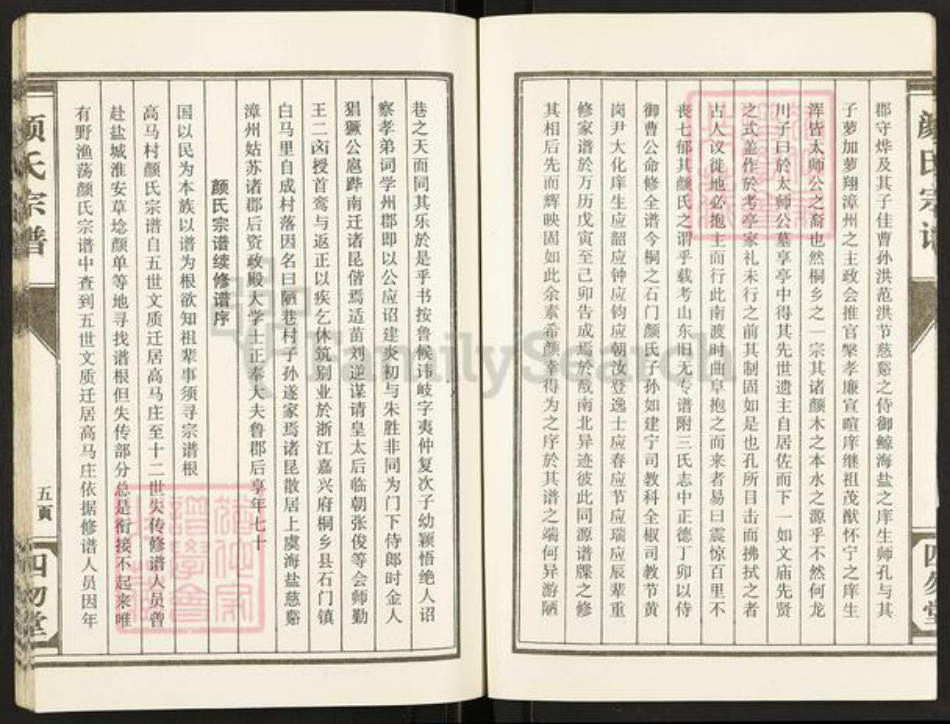 颜氏宗谱
四勿堂
郡守烨及其子佳曹孙洪范洪节慈谿之侍御鲸海盐之庠生师孔与其
子萝加萝翔漳州之主政会推官檠孝廉宣暄庠继祖茂猷怀宁之庠生
浑皆太师公之裔也然桐乡之一宗其诸颜木之本水之源乎不然何龙
川子曰於太师公墓享亭中得其先世遗主自居佐而下一如文庙先贤
之式盖作於考亭家礼未行之前其制固如是也孔所目击而拂拭之者
古人议徙地必抱主而行此南渡时曲阜抱之而来者易曰震惊百里不
丧七郁其颜氏之谓乎载考山东旧无专谱附三氏志中正德丁卯以侍
御曹公命修全谱今桐之石门颜氏子孙如建宁司教科全椒司教节黄
岗尹大化庠生应韶应钟应钧应朝汝登逸士应春应节应瑞应辰辈重
修家谱於万历戊寅至己卯告成焉於戲南北异迹彼此同源谱牒之修
其相后先而辉映固如此余素希颜幸得为之序於其谱之端何异游陋
巷之天而同其乐於是乎书按鲁候讳岐字夷仲复次子幼颖悟绝人诏
察孝弟词学州郡即以公应诏建炎初与朱胜非同为门下侍郎时金人
猖獗公扈跸南迁诸昆偕焉适苗刘逆谋请皇太后临朝张俊等会师勤
王二凶授首鸾与返正以疾乞休筑别业於浙江嘉兴府桐乡县石门镇
白马里自成村落因名曰陋巷村子孙遂家焉诸昆散居上虞海盐慈谿
漳州姑苏诸郡后资政殿大学士正奉大夫鲁郡后享年七十
颜氏宗谱续修谱序
国以民为本族以谱为根欲知祖辈事须寻宗谱根
高马村颜氏宗谱自五世文质迁居高马庄至十二世失传修谱人员曾
赴盐城淮安草埝颜单等地寻找谱根但失传部分总是衔接不起来唯
有野渔荡颜氏宗谱中查到五世文质迁居高马庄依据修谱人员因年
颜氏宗谱
五页
四勿堂
FamilySearch